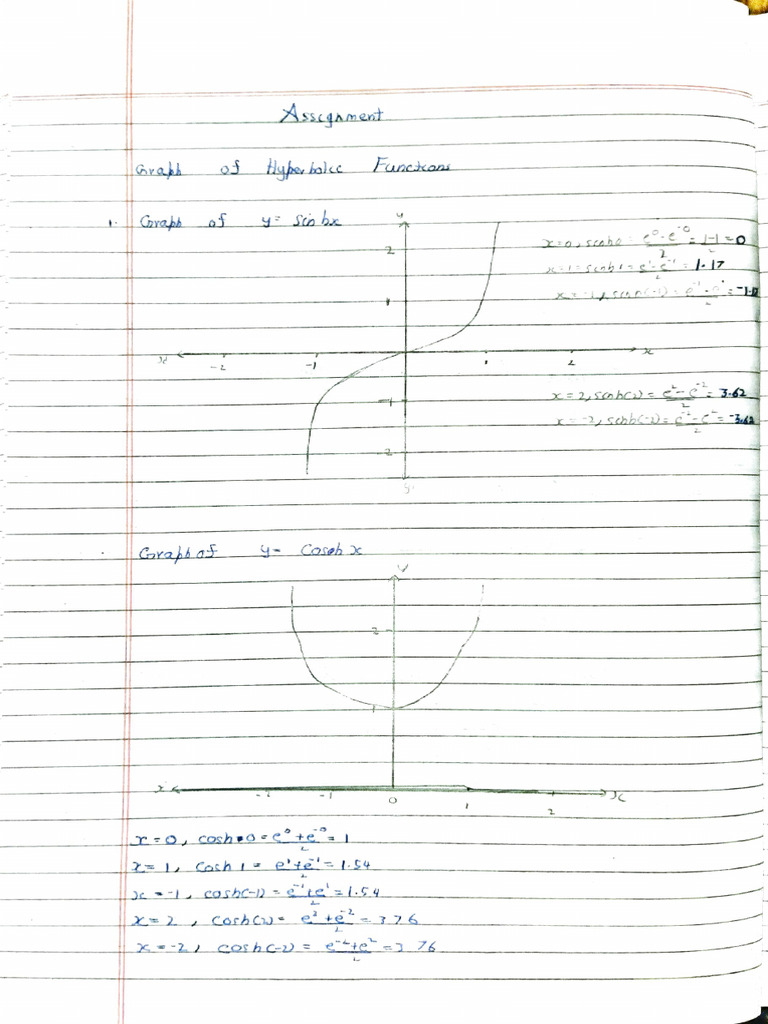 Assignment
Graph of Hyperbolic Functions
1. Graph of y= sinhx
y
2
1
x -2 -1 1 2 x
-1
-2
x=0, sinh0 = e⁰-e⁻⁰/2 = 1-1 = 0
x=1 = sinh1 = e¹-e⁻¹/2 = 1.17
x=-1, sinh(-1) = e⁻¹-e¹/2 =
x=2, sinh(2) = e²-e⁻²/2 = 3.62
x=-2, sinh(-2) = e⁻²-e²/2 = -3.62
Graph of y= Cosh x
y
2
1
x -2 -1 0 1 2 x
x=0, cosh 0 = e⁰+e⁻⁰/2 = 1
x=1, Cosh 1 = e¹+e⁻¹/2 = 1.54
x=-1, cosh(-1) = e⁻¹+e¹/2 = 1.54
x=2, Cosh(2) = e²+e⁻²/2 = 3.76
x=-2, cosh(-2) = e⁻²+e²/2 = 3.76